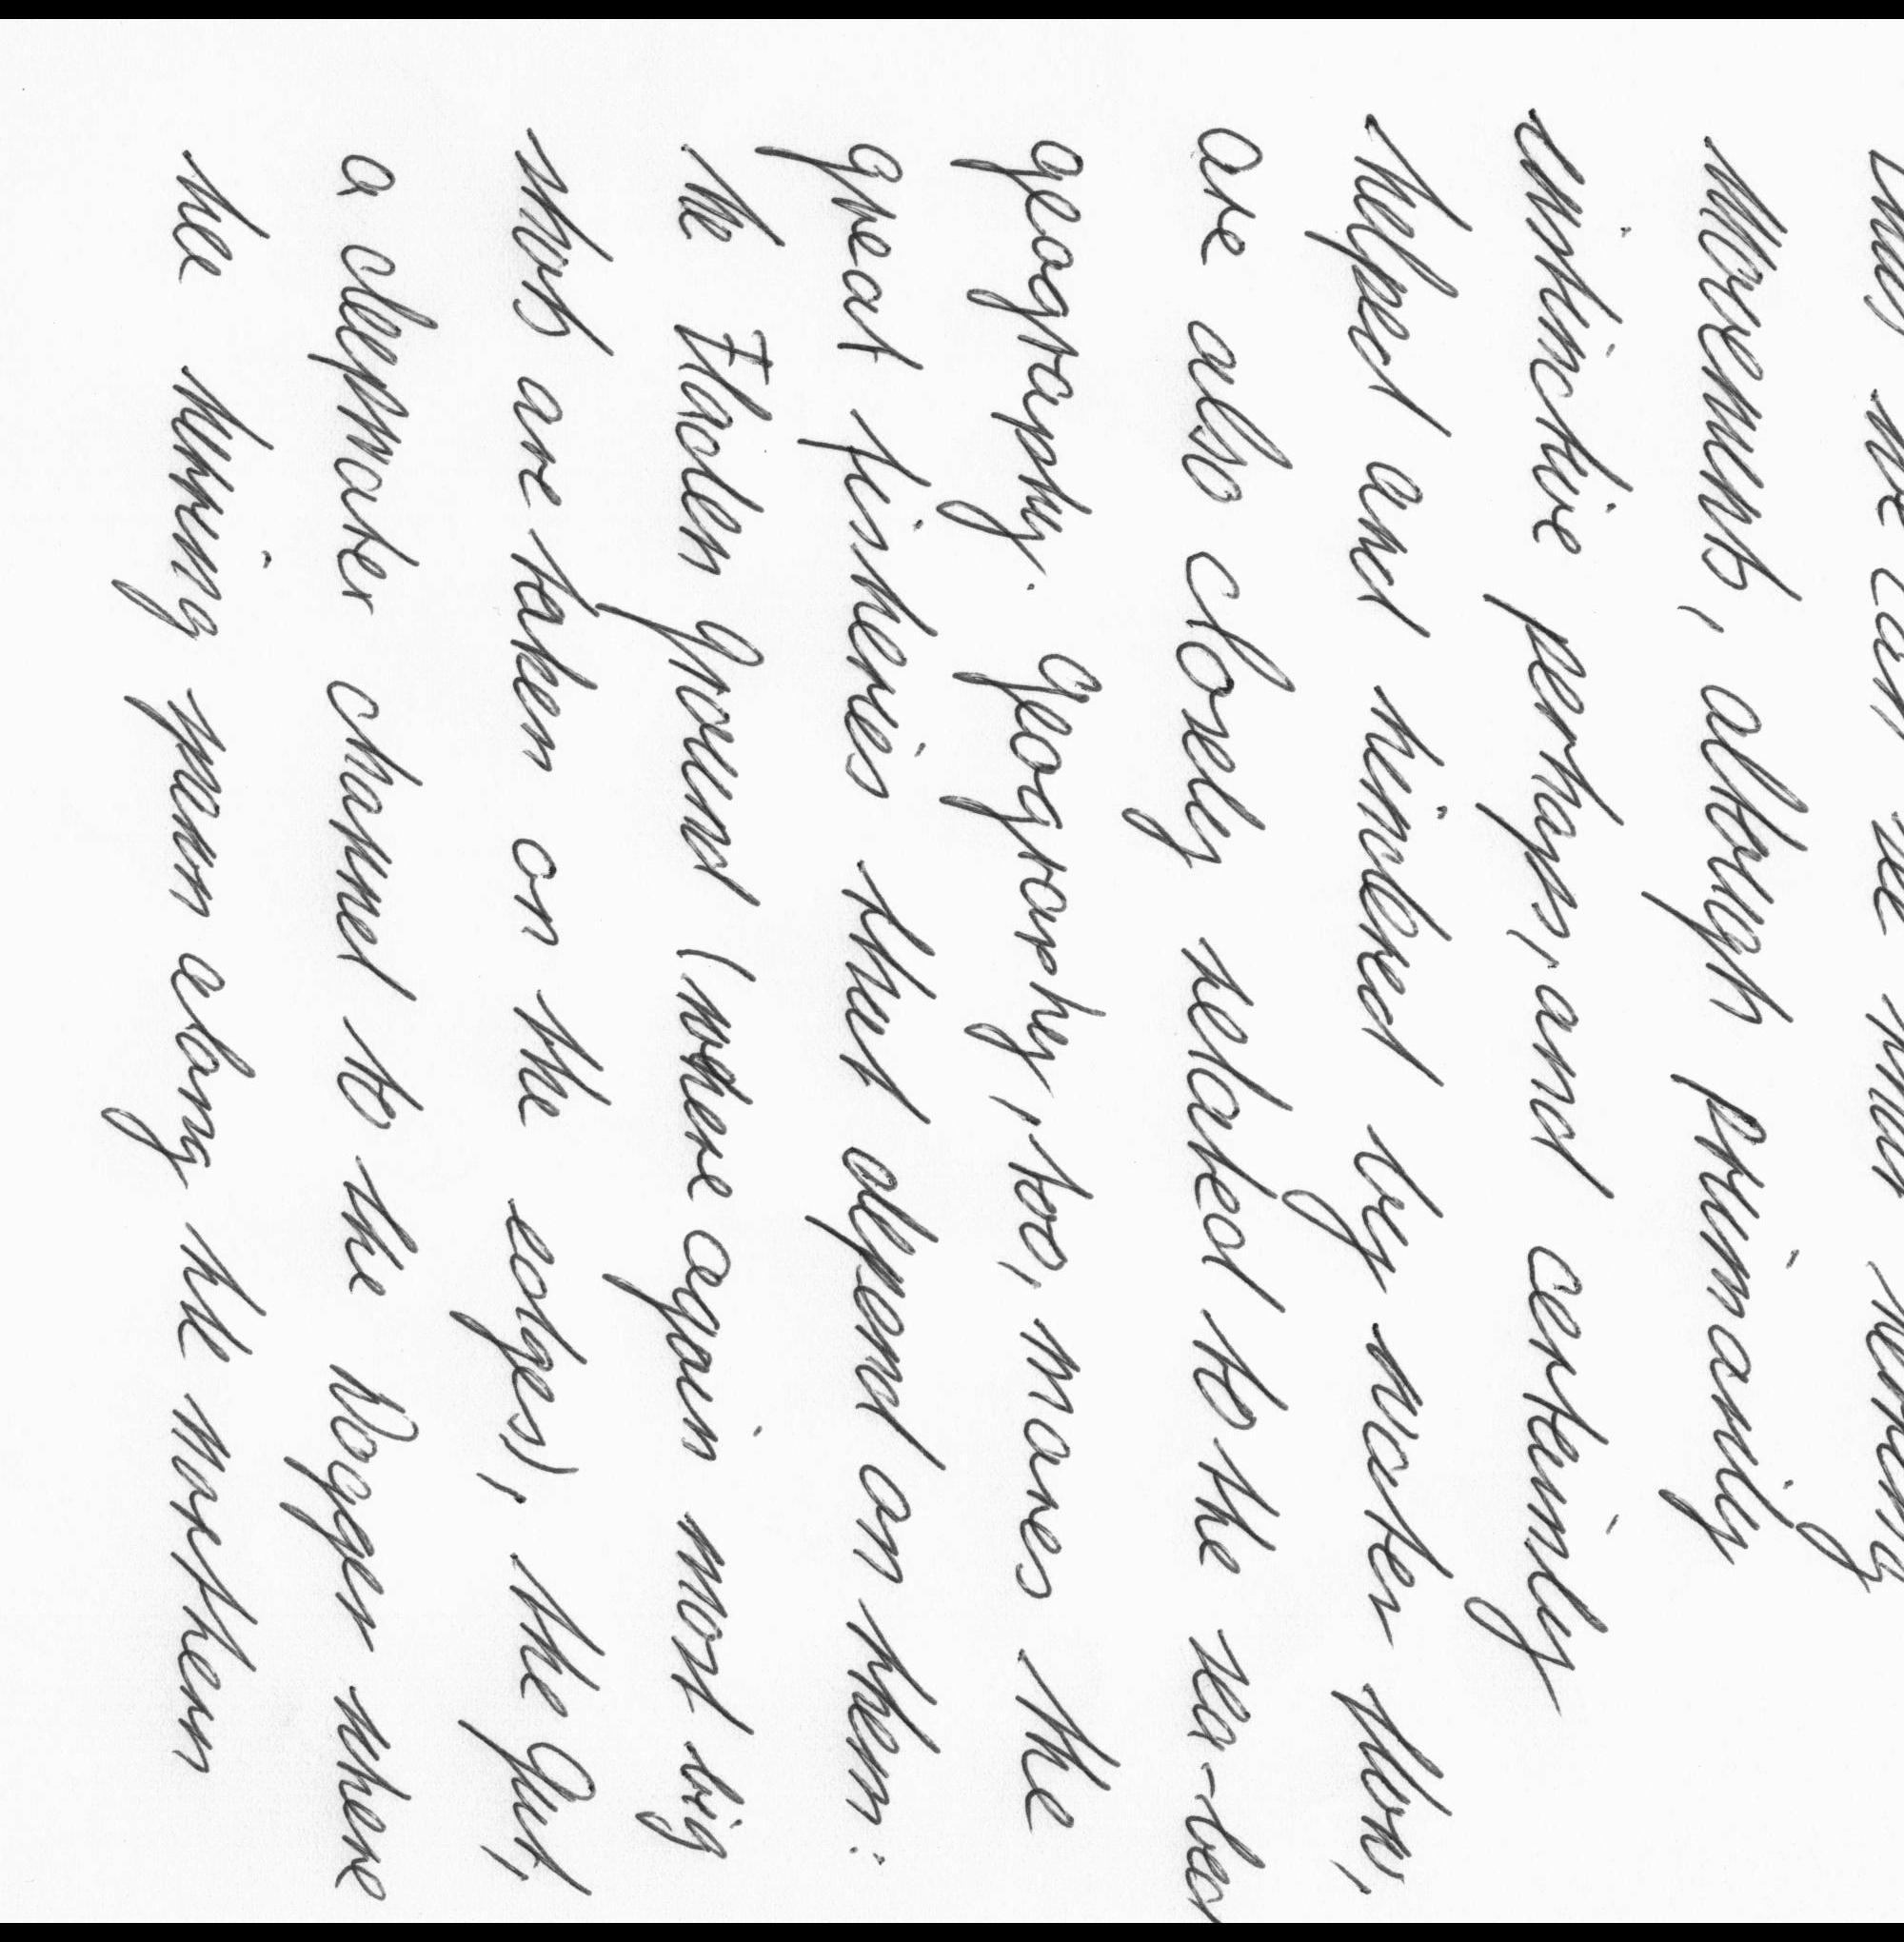 we can herring
Movements, although primarily
instinctive perhaps, and certainly
helped and hindered by water flow,
are also closely related to the sea-bed
geography. Geography, too, makes the
great fisheries that depend on them:
the Fladen Ground (where again most big
shots are taken on the edges), the Gut,
a deepwater channel to the Dogger where
the herring spawn along the northern